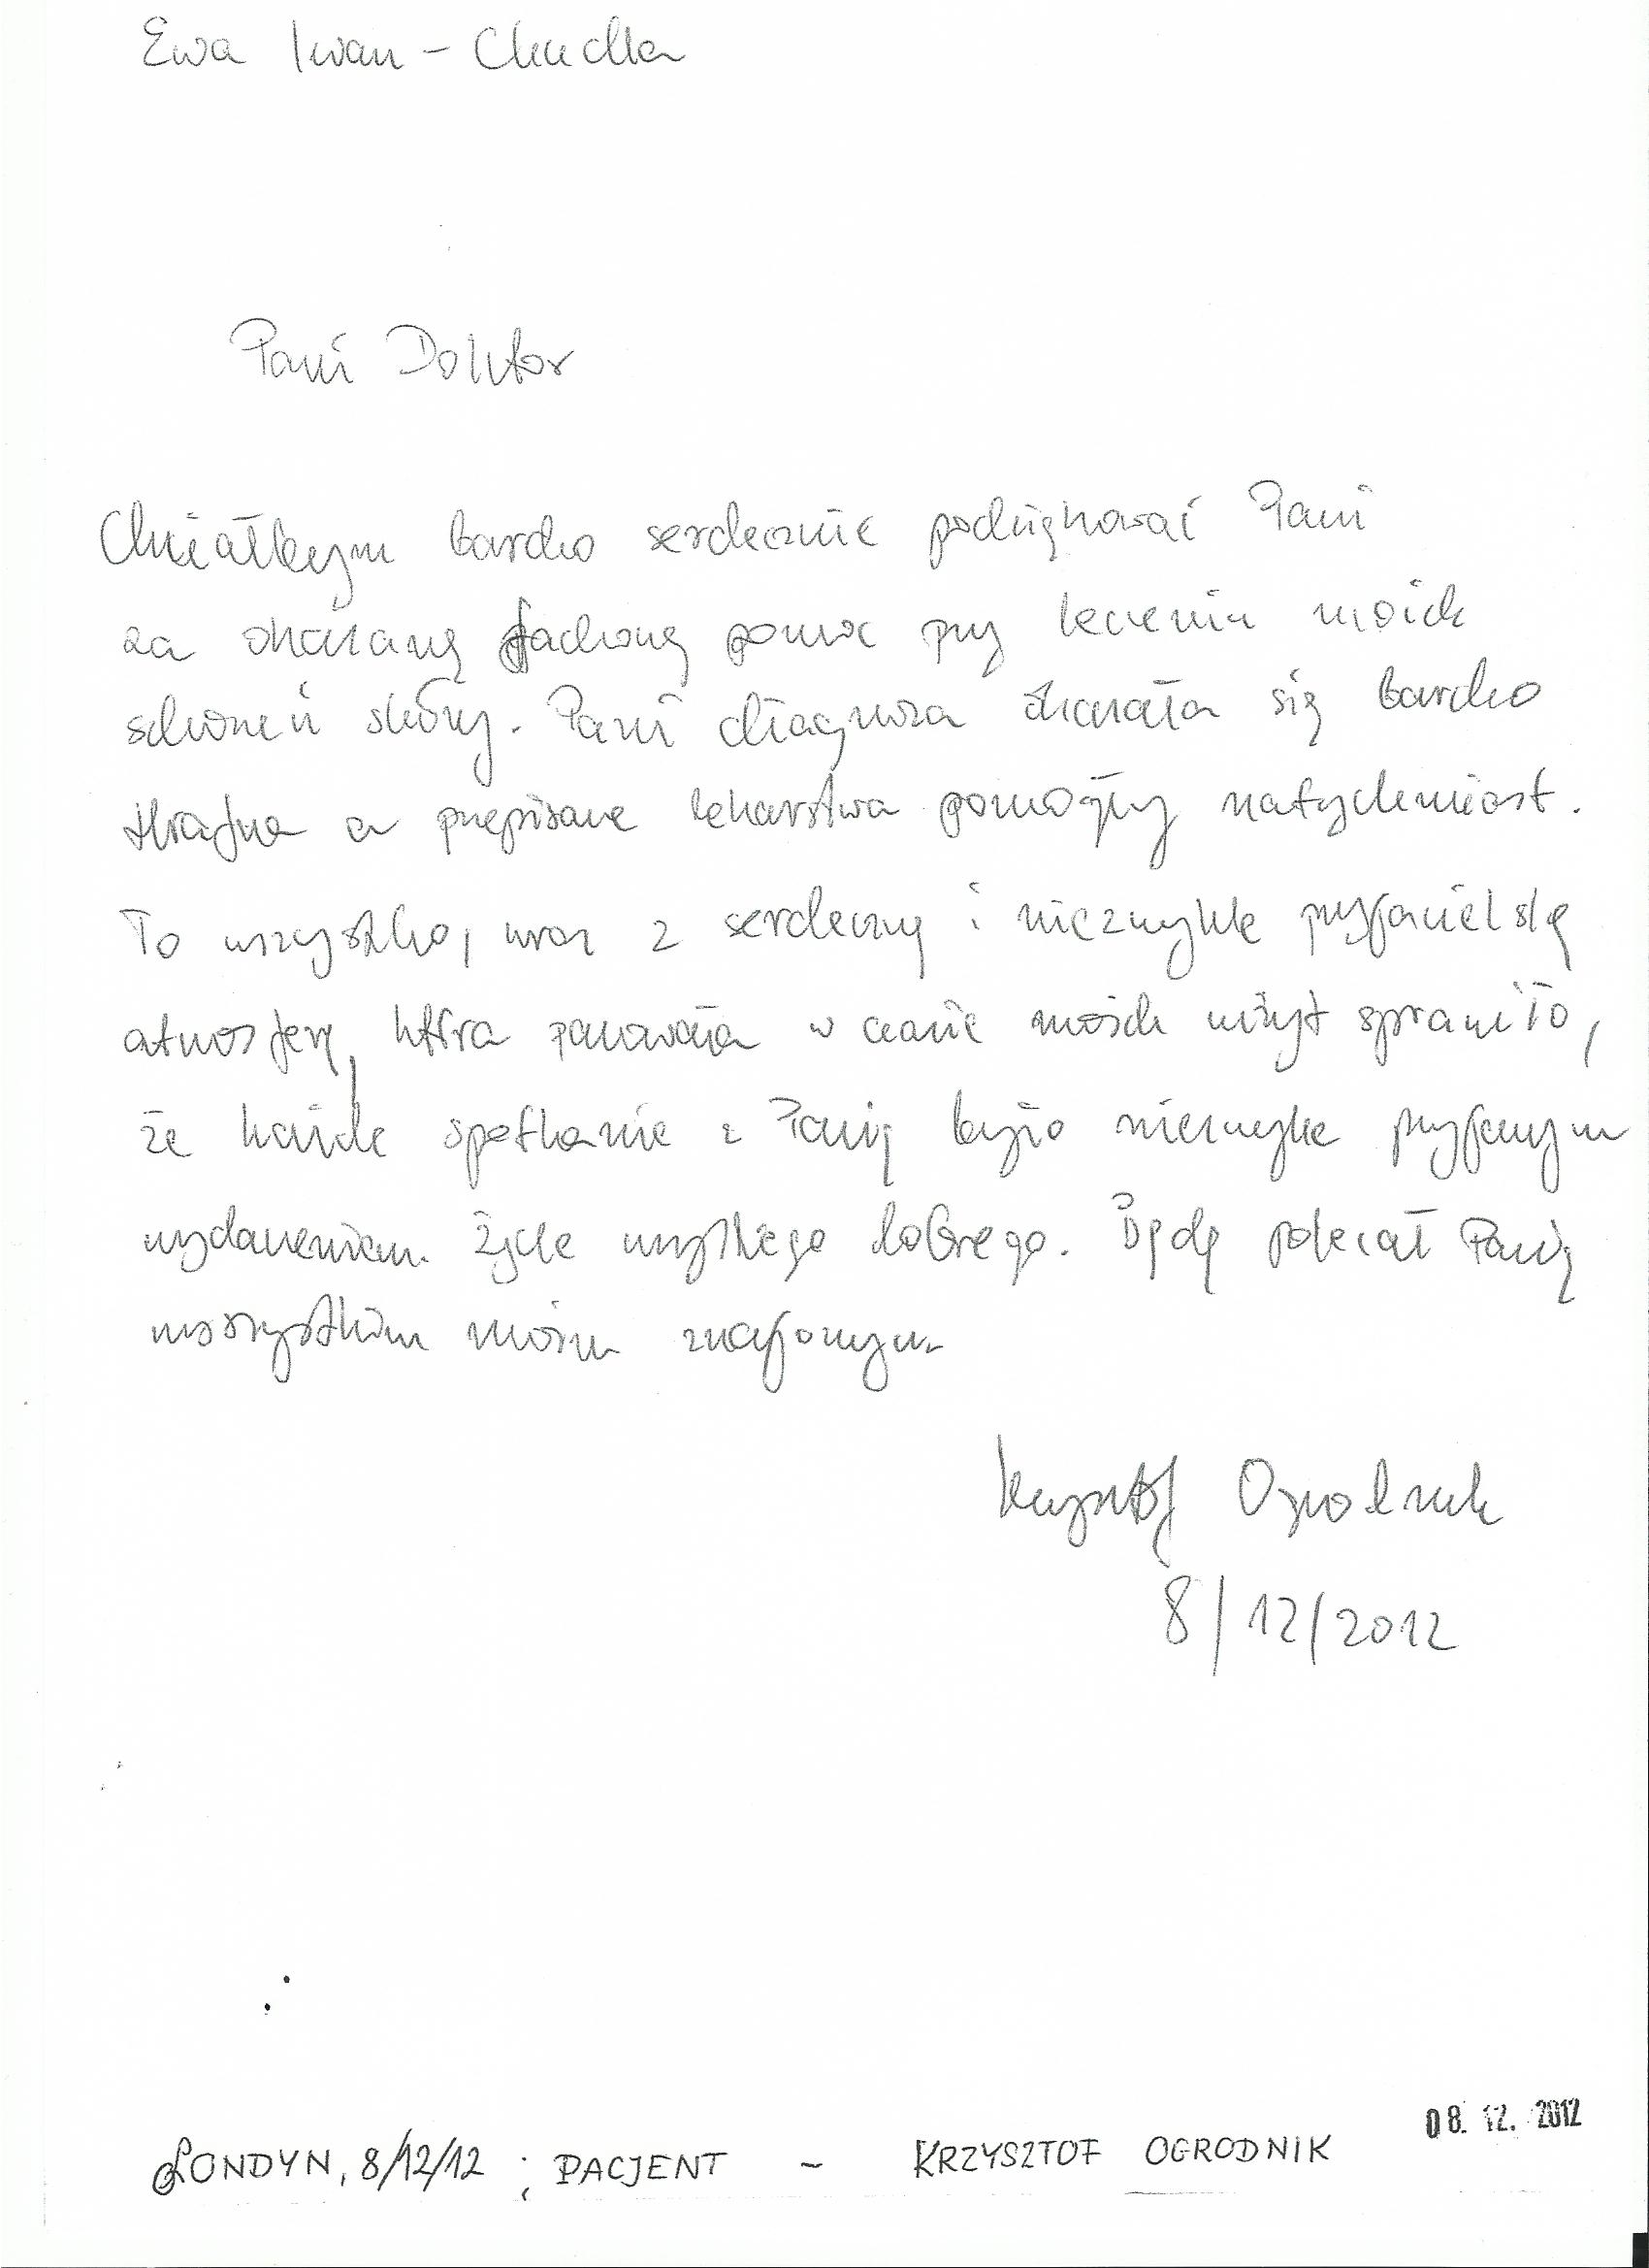 Ewa Iwan - Chuchla
Pani Doktor
Chciałbym bardzo serdecznie podziękować Pani
za okazaną fachową pomoc przy leczeniu moich
schorzeń skóry. Pani diagnoza okazała się bardzo
trafna a przepisane lekarstwa pomogły natychmiast.
To wszystko, wraz z serdeczną i niezwykle przyjacielską
atmosferą, która panowała w czasie moich wizyt sprawiło,
że każde spotkanie z Panią było niezwykle przyjemnym
wydarzeniem. Życzę wszystkiego dobrego. Będę polecał Panią
wszystkim moim znajomym.
Krzysztof Ogrodnik
8/12/2012
08. 12. 2012
LONDYN, 8/12/12 ; PACJENT - KRZYSZTOF OGRODNIK